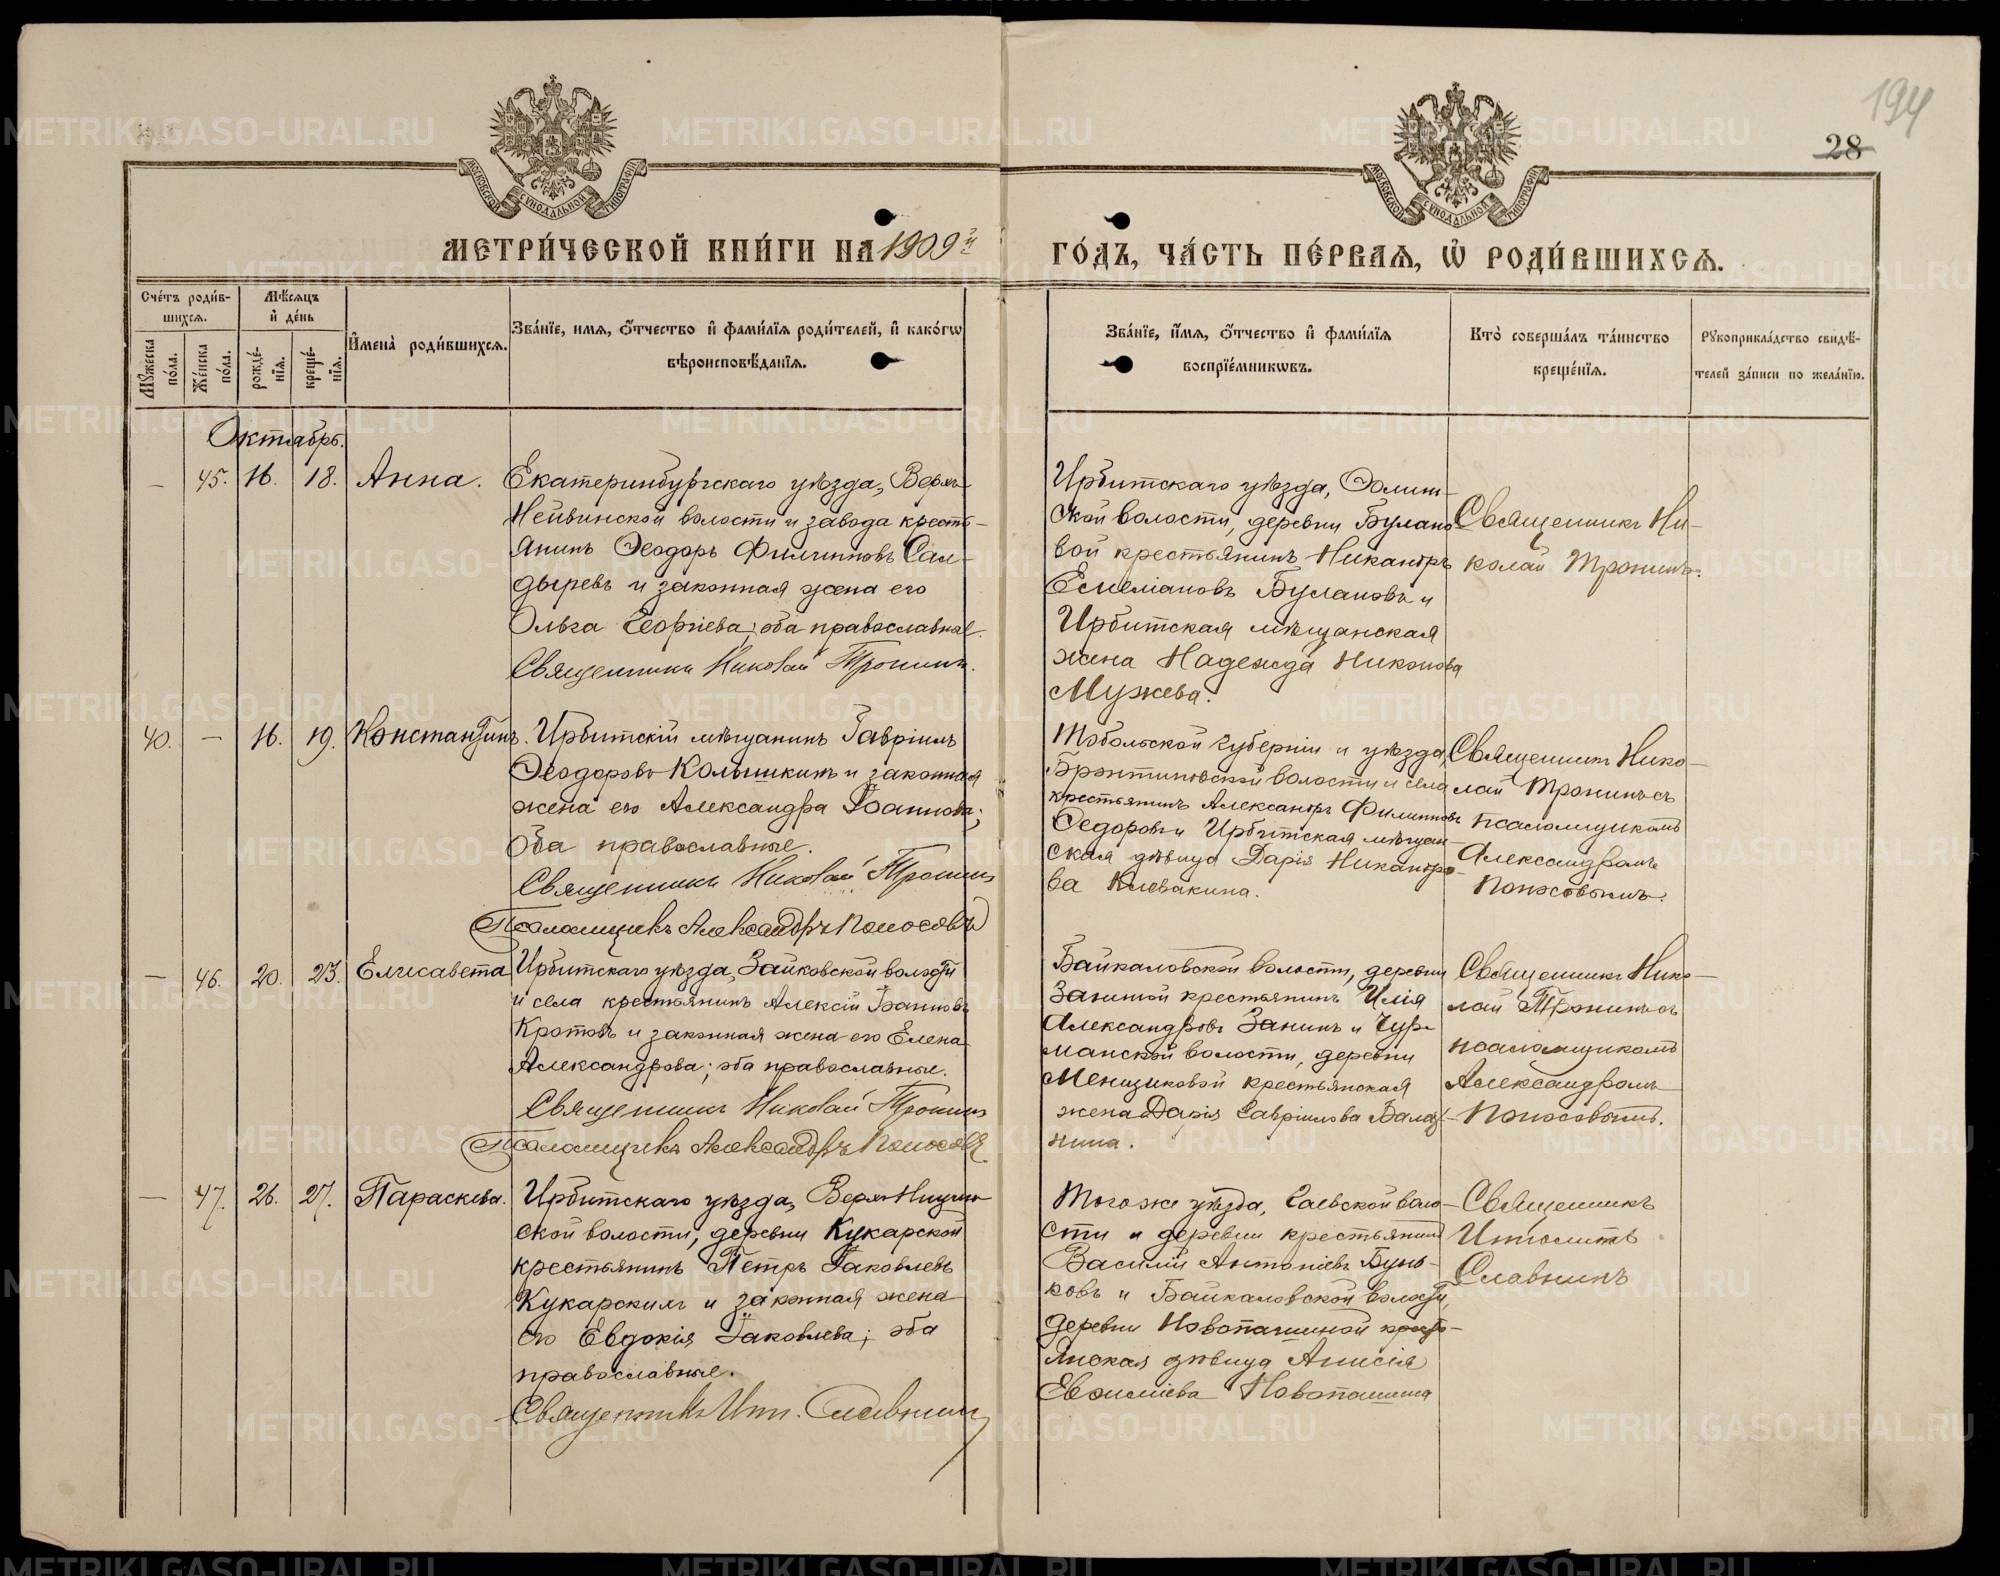 194
28
МОСКОВСКОЙ СѴНОДАЛЬНОЙ ТИПОГРАФІИ
МОСКОВСКОЙ СѴНОДАЛЬНОЙ ТИПОГРАФІИ
МЕТРИ́ЧЕСКОЙ КНИ́ГИ НА 1909й
ГО́ДЪ, ЧА́СТЬ ПЕ́РВАѦ, Ѽ РОДИ́ВШИХСѦ.
Сче́тъ роди́в-
шихсѧ.
Мꙋжеска по́ла.
Же́нска по́ла.
Мѣ́сѧцъ
и҆ де́нь
рожде́-
нїѧ.
креще́-
нїѧ.
И҆мена̀ роди́вшихсѧ.
Зва́нїе, имѧ, ѻ҆́тчество и҆ фами́лїѧ роди́телей, и҆ како́гѡ
вѣроисповѣ́данїѧ.
Зва́нїе, и҆́мѧ, ѻ҆́тчество и҆ фами́лїѧ
воспрїе́мникѡвъ.
Кто̀ соверша́лъ та́инство
креще́нїѧ.
Рꙋкоприкла́дство свидѣ́-
телей за́писи по жела́нїю.
Октябрь.
— 45. 16. 18. Анна.
Екатеринбургскаго уѣзда, Верхъ-
Нейвинской волости и завода кресть-
янинъ Ѳеодоръ Филипповъ Сал-
дыревъ и законная жена его
Ольга Георгіева; оба православные.
Священникъ Николай Тронинъ.
Ирбитскаго уѣзда,
ской волости, деревни Булано
вой крестьянинъ Никандръ
Емеліановъ Булановъ и
Ирбитская мѣщанская
жена Надежда Никонова
Мужева.
Священникъ Ни-
колай Тронинъ.
40. — 16. 19. Константинъ.
Ирбитскій мѣщанинъ Гавріилъ
Ѳеодоровъ и законная
жена его Александра Іоаннова;
оба православные.
Священникъ Николай Тронинъ
Псаломщикъ Александръ Поносовъ
Тобольской губерніи и уѣзда,
волости и села
крестьянинъ Александръ Филиппов
Ѳедоровъ и Ирбитская мѣщан-
ская дѣвица Дарія Никандро-
ва Клевакина.
Священникъ Нико-
лай Тронинъ съ
псаломщикомъ
Александромъ
Поносовымъ.
— 46. 20. 23. Елисавета
Ирбитскаго уѣзда, Зайковской волости
и села крестьянинъ Алексій Іоанновъ
Кротовъ и законная жена его Елена
Александрова; оба православные.
Священникъ Николай Тронинъ
Псаломщикъ Александръ Поносовъ
Байкаловской волости, деревни
Заниной крестьянинъ Илія
Александровъ Занинъ и Чур-
манской волости, деревни
Менщиковой крестьянская
жена Дарія Гавріилова Балак-
нина.
Священникъ Нико-
лай Тронинъ съ
псаломщикомъ
Александромъ
Поносовымъ.
— 47. 26. 27. Параскева.
Ирбитскаго уѣзда, Верх-Ницин-
ской волости, деревни Кукарской
крестьянинъ Петръ Іаковлевъ
Кукарскихъ и законная жена
его Евдокія Іаковлева; оба
православные.
Священникъ Ип. Славнинъ
Того же уѣзда, Гаевской воло-
сти и деревни крестьянинъ
Василій Антоніевъ Бунь-
ковъ и Байкаловской волости,
деревни Новопашиной кресть-
янская дѣвица Анисія
Евѳиміева Новопашина
Священникъ
Ипполитъ
Славнинъ
METRIKI.GASO-URAL.RU